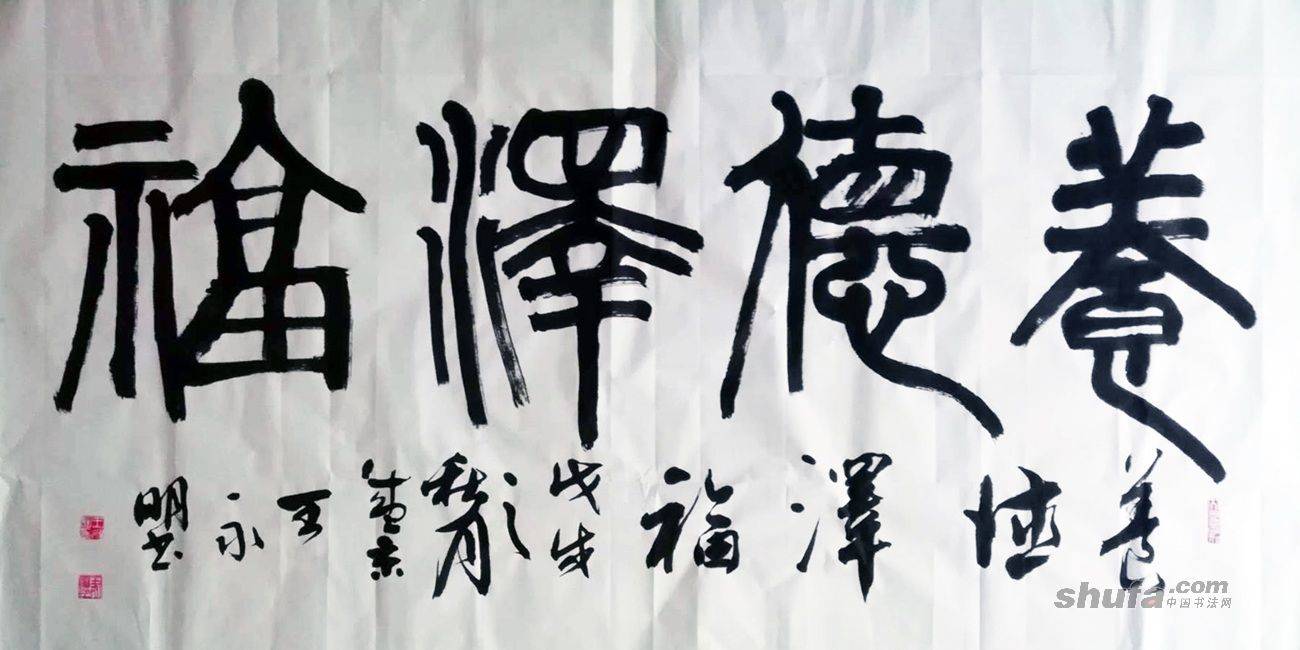 養德澤福
養德澤福
戊戌
之
秋月
王永
明书
shufa.com
中国书法网